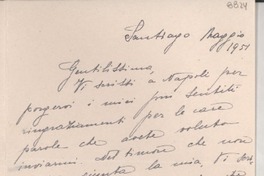 8824
Santiago Maggio
1951
Gentilissima,
Vi scrissi à Napoli per
porgervi i miei più sentiti
ringraziamenti per le care
parole che avete voluto
inviarmi. Nel timore che non
la mia, Vi